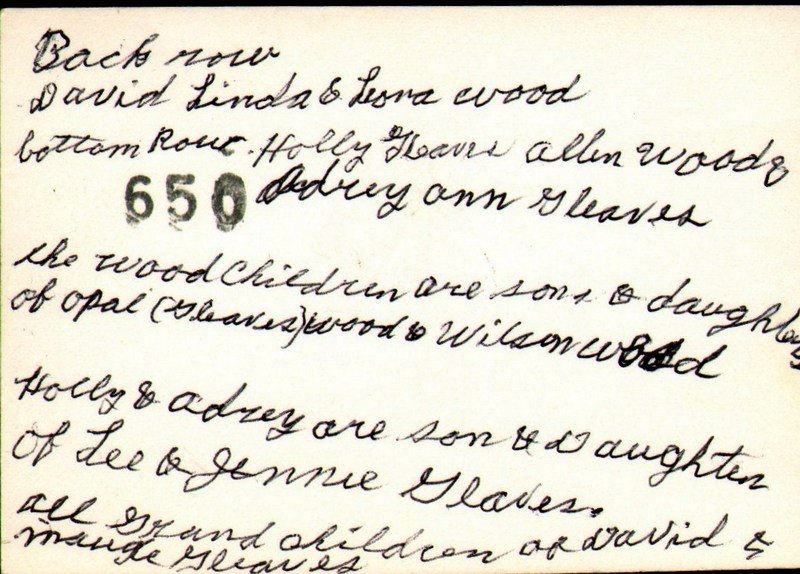 Back row
David Linda & Leora Wood
bottom Row. Holly Gleaves Allen Wood &
650 Adrey Ann Gleaves
the Wood Children are sons & daughters
of Opal (Gleaves) Wood & Wilson Wood
Holly & Adrey are son & Daughter
of Lee & Jennie Gleaves.
all Grand children of David &
Maude Gleaves